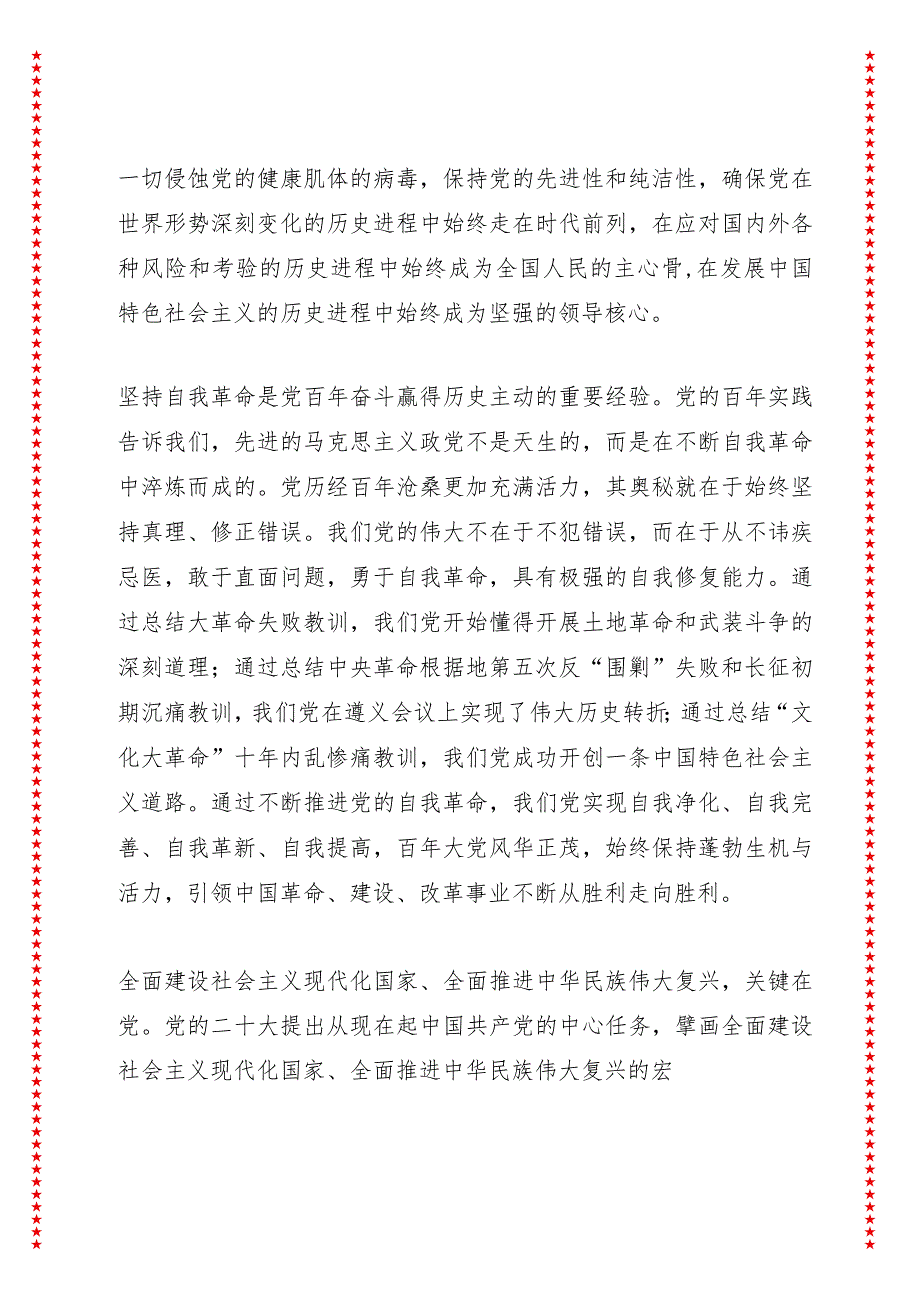 一切侵蚀党的健康肌体的病毒，保持党的先进性和纯洁性，确保党在
世界形势深刻变化的历史进程中始终走在时代前列，在应对国内外各
种风险和考验的历史进程中始终成为全国人民的主心骨,在发展中国
特色社会主义的历史进程中始终成为坚强的领导核心。
坚持自我革命是党百年奋斗赢得历史主动的重要经验。党的百年实践
告诉我们，先进的马克思主义政党不是天生的，而是在不断自我革命
中淬炼而成的。党历经百年沧桑更加充满活力，其奥秘就在于始终坚
持真理、修正错误。我们党的伟大不在于不犯错误，而在于从不讳疾
忌医，敢于直面问题，勇于自我革命，具有极强的自我修复能力。通
过总结大革命失败教训，我们党开始懂得开展土地革命和武装斗争的
深刻道理；通过总结中央革命根据地第五次反“围剿”失败和长征初
期沉痛教训，我们党在遵义会议上实现了伟大历史转折；通过总结“文
化大革命”十年内乱惨痛教训，我们党成功开创一条中国特色社会主
义道路。通过不断推进党的自我革命，我们党实现自我净化、自我完
善、自我革新、自我提高，百年大党风华正茂，始终保持蓬勃生机与
活力，引领中国革命、建设、改革事业不断从胜利走向胜利。
全面建设社会主义现代化国家、全面推进中华民族伟大复兴，关键在
党。党的二十大提出从现在起中国共产党的中心任务，擘画全面建设
社会主义现代化国家、全面推进中华民族伟大复兴的宏